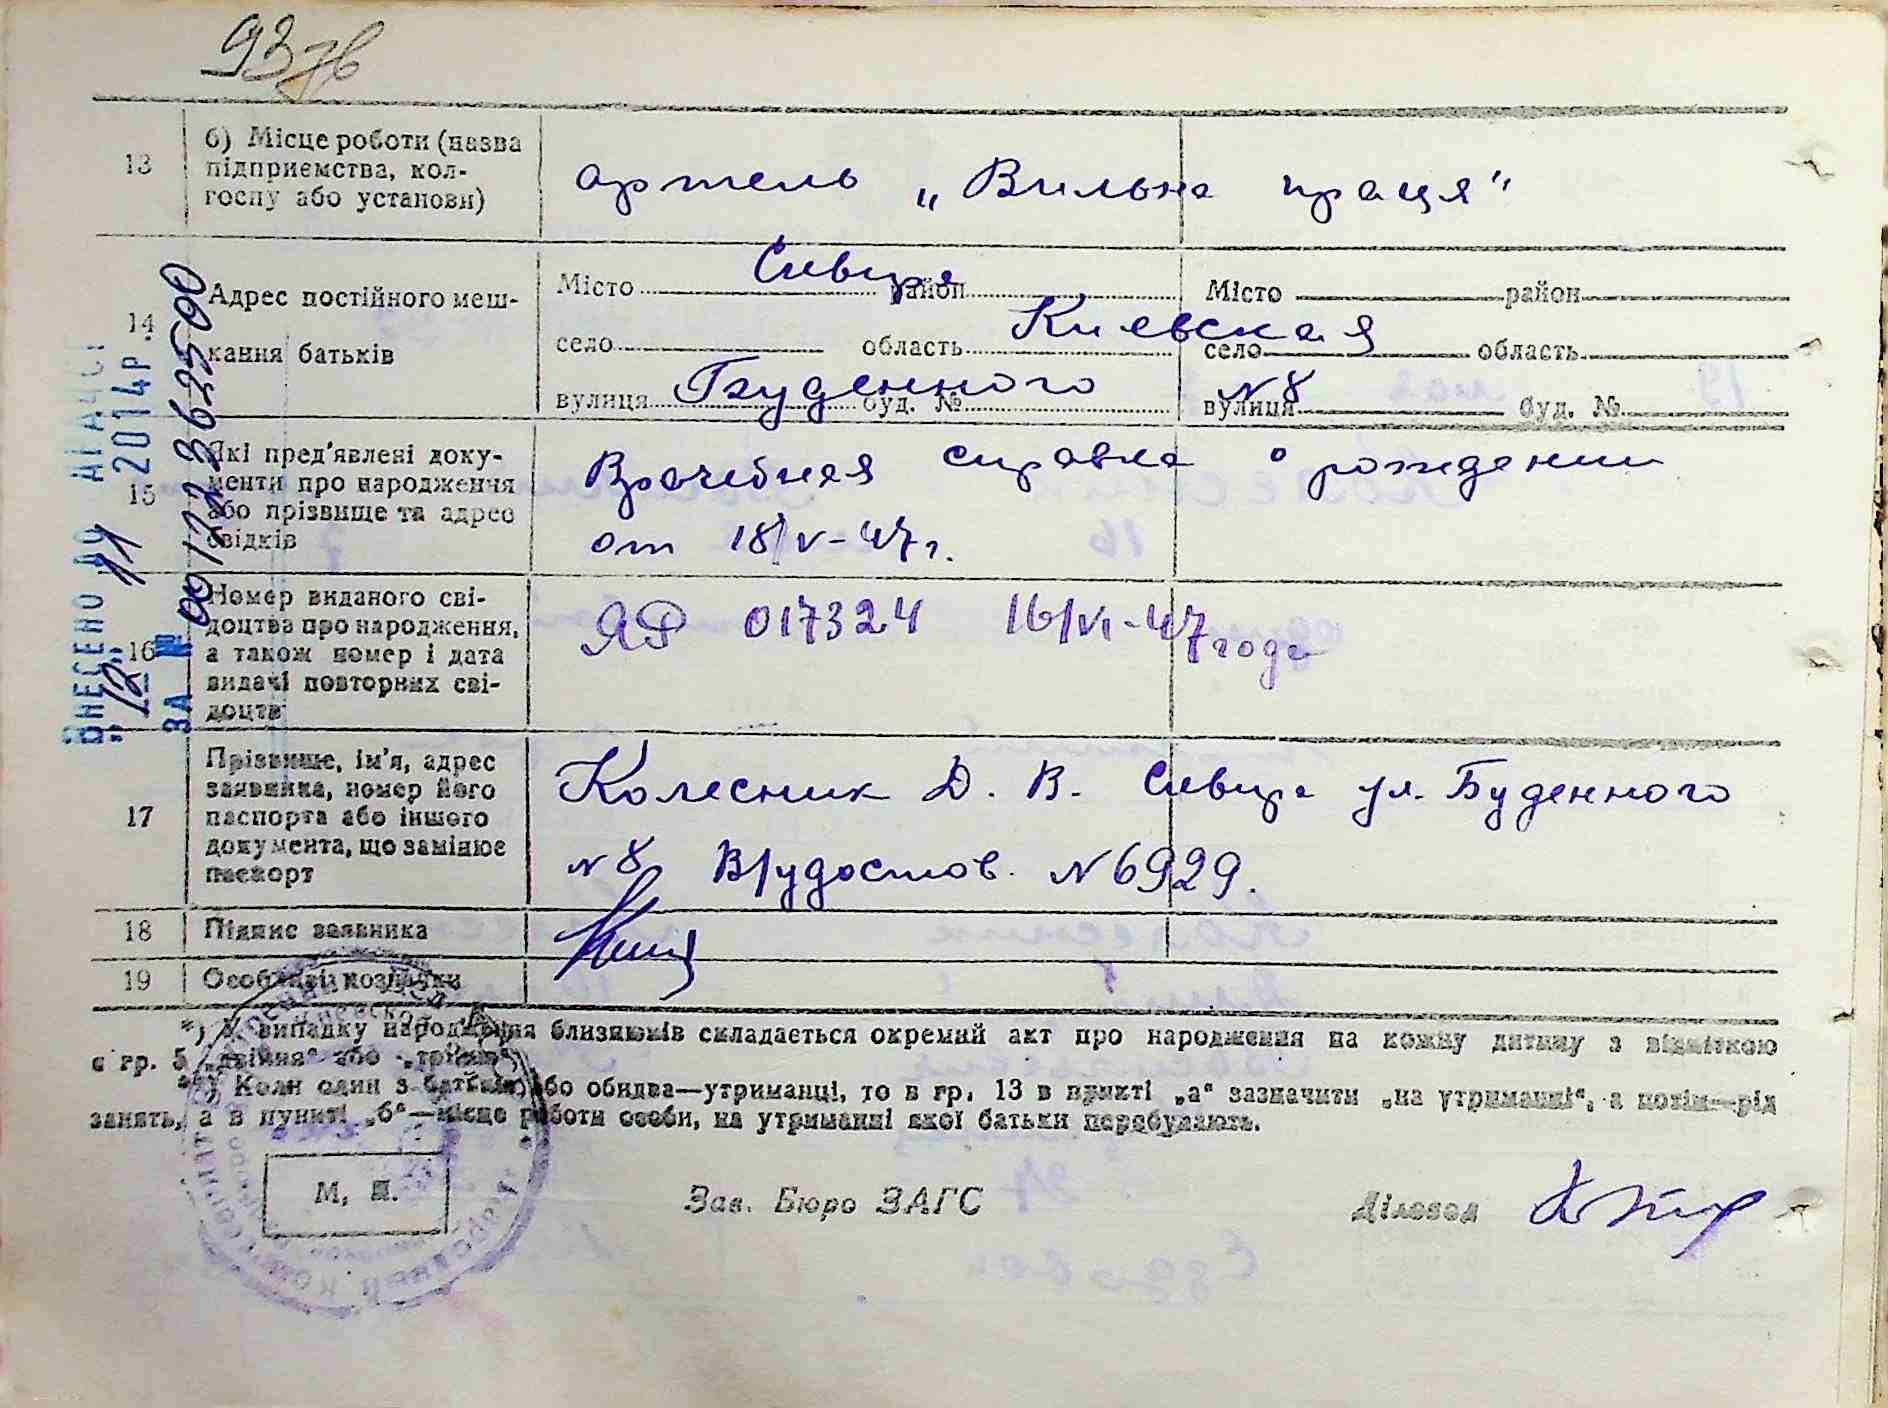 93 76
13
б) Місце роботи (назва
підприємства, кол-
госпу або установи)
артель „Вильна праця"
14
Адрес постійного меш-
кання батьків
Місто Сквира район
село область Киевская
вулиця Буденного буд. № N 8
Місто район
село область
вулиця буд. №
15
Які пред'явлені доку-
менти про народження
або прізвище та адрес
свідків
Врачебная справка о рождении
от 18/V-47г.
16
Номер виданого сві-
доцтва про народження,
а також номер і дата
видачі повторних сві-
доцтв
ЯР 017324 16/VI-47 года
17
Прізвище, ім'я, адрес
заявника, номер його
паспорта або іншого
документа, що замінює
паспорт
Колесник Д. В. Сквира ул. Буденного
N 8 В/удостов. N 6929.
18
Підпис заявника
19
Особливі позначки
*) У випадку народження близнюків складається окремий акт про народження на кожну дитину з відміткою
в гр. 5 „двійня" або „трійня".
**) Коли один з батьків або обидва—утриманці, то в гр. 13 в пункті „а" зазначити „на утриманні", а потім—рід
занять, а в пункті „б"—місце роботи особи, на утриманні якої батьки перебувають.
М. П.
Зав. Бюро ЗАГС
Діловод
ВНЕСЕНО ДО ДРАЦС
„12" 11 2014р.
ЗА № 00172362500